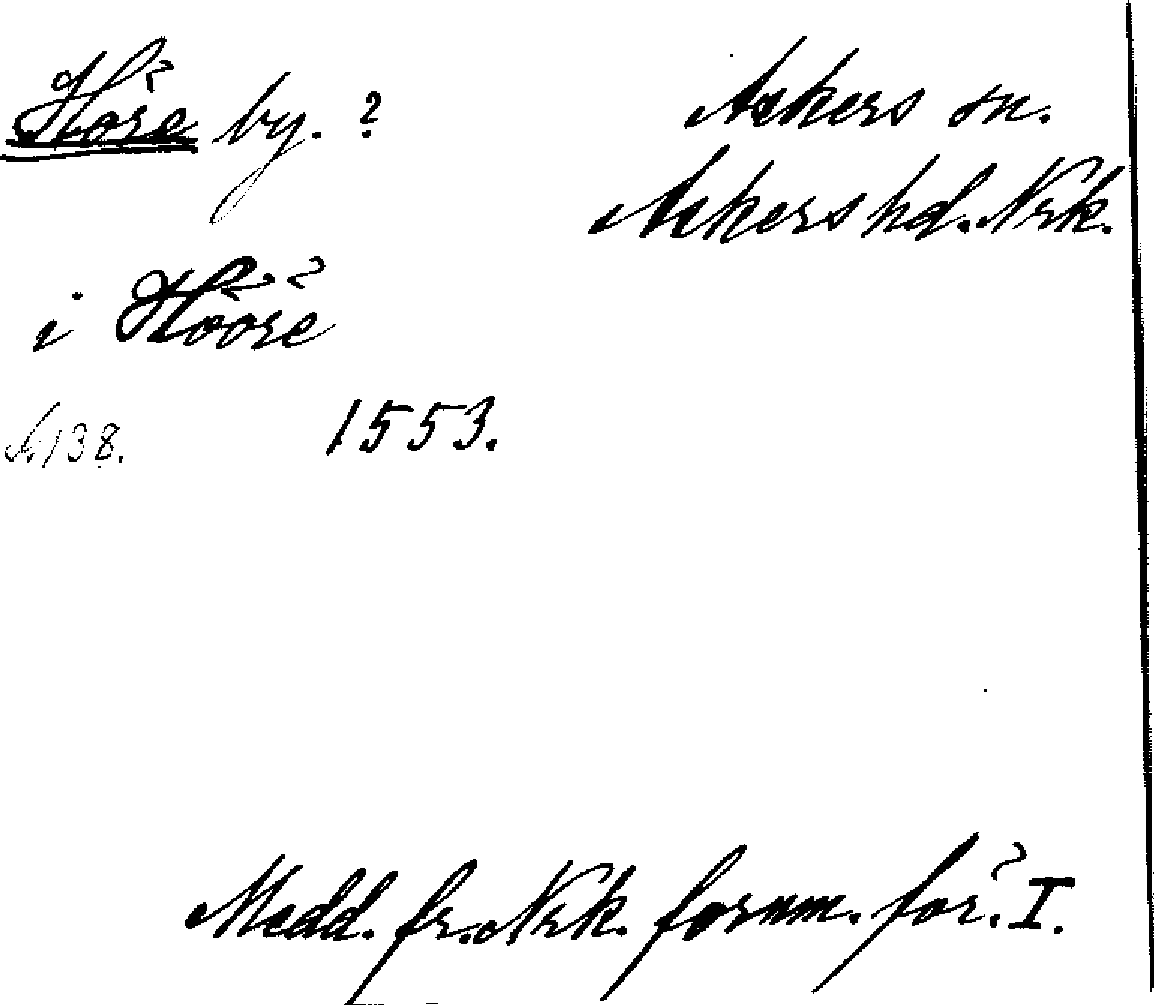 Höre by. ?
Askers sn.
Askers hd. Nrk.
i Hööre
N. 138.
1553.
Medd. fr. Nrk. fornm. för. I.